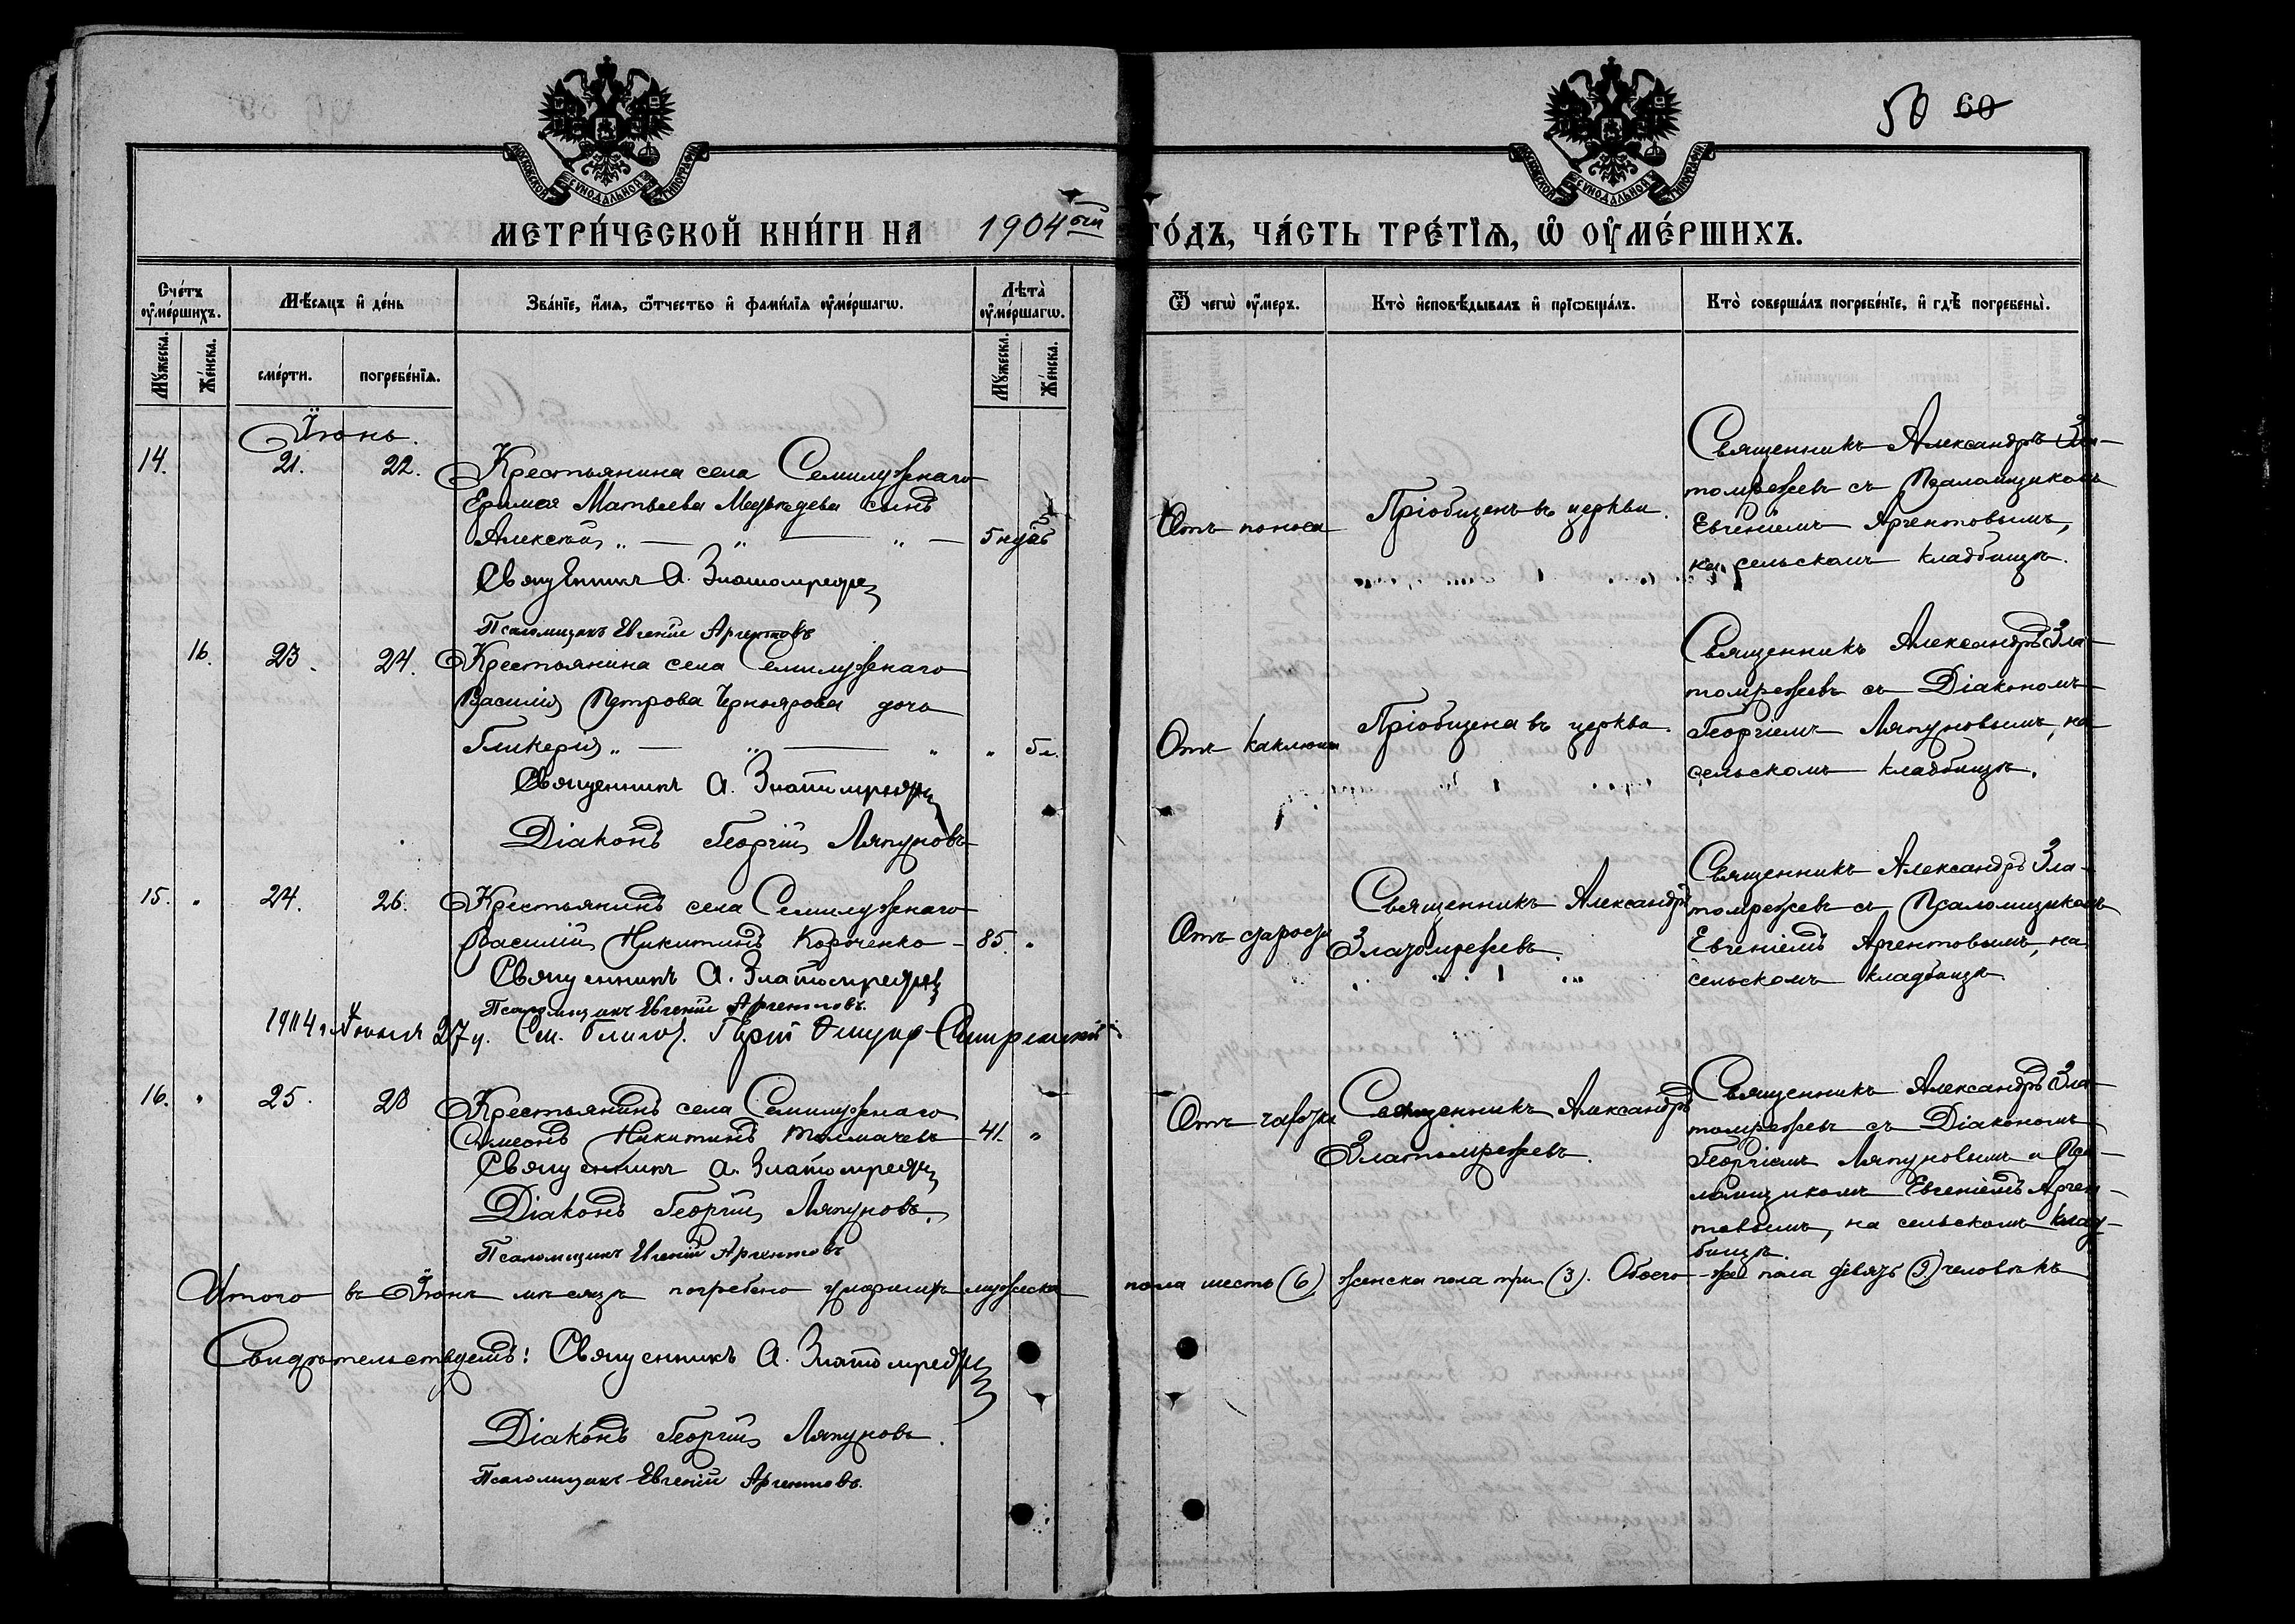 50 60
МОСКОВСКОЙ СѴНОДАЛЬНОЙ ТИПОГРАФІИ
МОСКОВСКОЙ СѴНОДАЛЬНОЙ ТИПОГРАФІИ
МЕТРИ́ЧЕСКОЙ КНИ́ГИ НА 1904ый ГО́ДЪ, ЧА́СТЬ ТРЕ́ТІѦ, Ѡ҆ ОУ҆МЕ́РШИХЪ.
Сче́тъ оу҆ме́ршихъ.
Мѣ́сяцъ и҆ де́нь
Зва́нїе, и҆́мѧ, ѻ҆́тчество и҆ фами́лїѧ оу҆ме́ршагѡ.
Лѣ́та оу҆ме́ршагѡ.
Ѿ чегѡ̀ оу҆́меръ.
Кто̀ и҆сповѣ́дывалъ и҆ прїѡбща́лъ.
Кто̀ соверша́лъ погребе́нїе, и҆ гдѣ̀ погребены̀.
Мꙋ́жеска. Же́нска.
сме́рти. погребе́нїѧ.
Мꙋ́жеска. Же́нска.
Іюнь.
14. 21. 22. Крестьянина села Семилужнаго
Матвѣева Медвѣдева сынъ
Алексѣй 5 нед.
Священникъ А. Златомрежев
Псаломщикъ Евгеній Аргентовъ
Отъ поноса
Пріобщенъ въ церкви.
Священникъ Александръ Зла-
томрежевъ съ Псаломщикомъ
Евгеніемъ Аргентовымъ,
на сельскомъ кладбищѣ.
16. 23. 24. Крестьянина села Семилужнаго
Василія Петрова Черноярова дочь
Гликерія 5 л.
Священникъ А. Златомрежев
Діаконъ Георгій Ляпуновъ
Отъ каклюша
Пріобщена въ церкви
Священникъ Александръ Зла-
томрежевъ съ Діакономъ
Георгіемъ Ляпуновымъ, на
сельскомъ кладбищѣ.
15. 24. 26. Крестьянинъ села Семилужнаго
Василій Никитинъ Короченко 85.
Священникъ А. Златомрежев
Псаломщикъ Евгеній Аргентовъ.
Отъ старости
Священникъ Александръ
Златомрежевъ.
Священникъ Александръ Зла-
томрежевъ съ Псаломщикомъ
Евгеніемъ Аргентовымъ, на
сельскомъ кладбищѣ
1904 г. Іюня 27 д. См. Благоч.
16. 25. 28 Крестьянинъ села Семилужнаго
Симеонъ Никитинъ Толмачевъ 41.
Священникъ А. Златомрежев
Діаконъ Георгій Ляпуновъ.
Псаломщикъ Евгеній Аргентовъ
Отъ чахотки
Священникъ Александръ
Златомрежевъ.
Священникъ Александръ Зла-
томрежевъ съ Діакономъ
Георгіемъ Ляпуновымъ и Пса-
ломщикомъ Евгеніемъ Арген-
товымъ, на сельскомъ клад-
бищѣ.
Итого въ Іюнѣ мѣсяцѣ погребено умершихъ мужеска пола шесть (6), женска пола три (3). Обоего-же пола девять (9) человѣкъ
Свидѣтельствуемъ: Священникъ А. Златомрежев
Діаконъ Георгій Ляпуновъ.
Псаломщикъ Евгеній Аргентовъ.